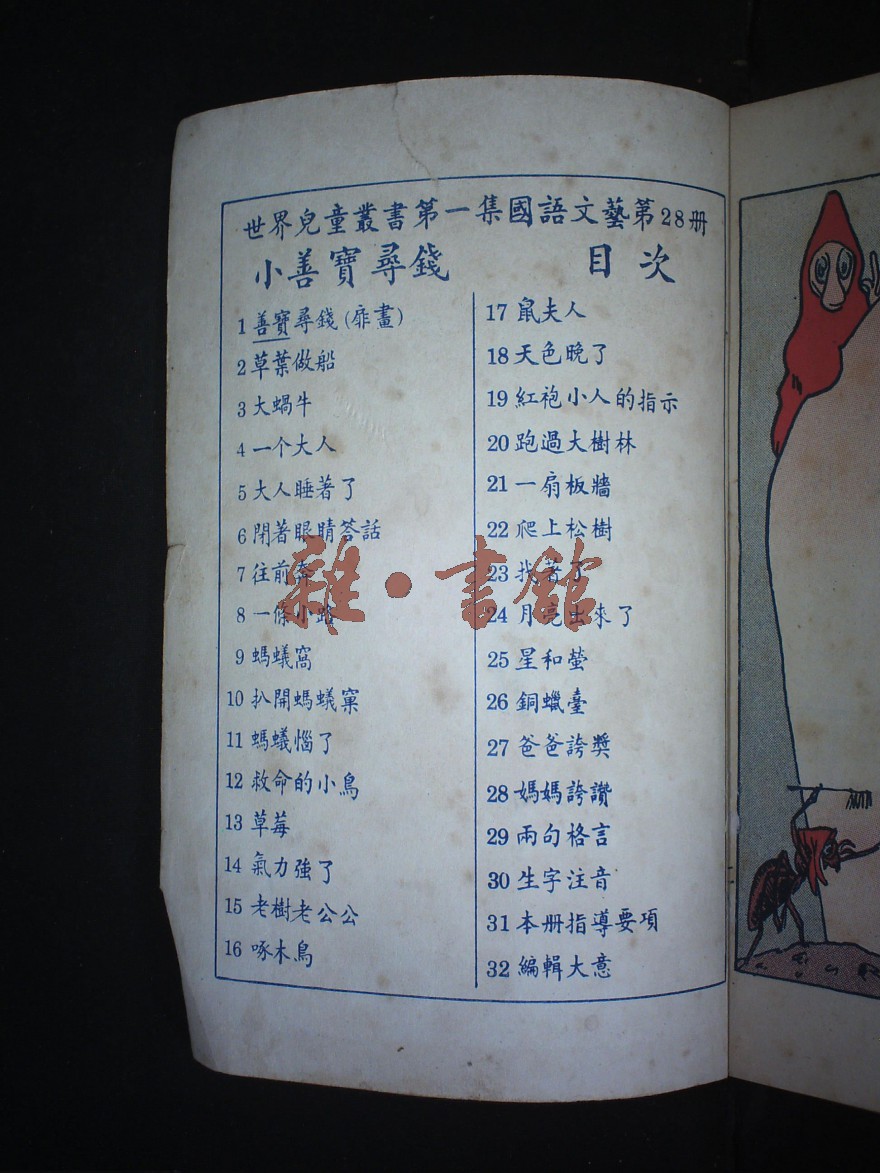 世界兒童叢書第一集國語文藝第28册
小善寶尋錢 目次
1 善寶尋錢(扉畫)
2 草葉做船
3 大蝸牛
4 一个大人
5 大人睡著了
6 閉著眼睛答話
7 往前奔
8 一條小路
9 螞蟻窩
10 扒開螞蟻窠
11 螞蟻惱了
12 救命的小鳥
13 草莓
14 氣力強了
15 老樹老公公
16 啄木鳥
17 鼠夫人
18 天色晚了
19 紅袍小人的指示
20 跑過大樹林
21 一扇板牆
22 爬上松樹
23 找著了
24 月亮出來了
25 星和螢
26 銅蠟臺
27 爸爸誇獎
28 媽媽誇讚
29 兩句格言
30 生字注音
31 本册指導要項
32 編輯大意
雜·書館